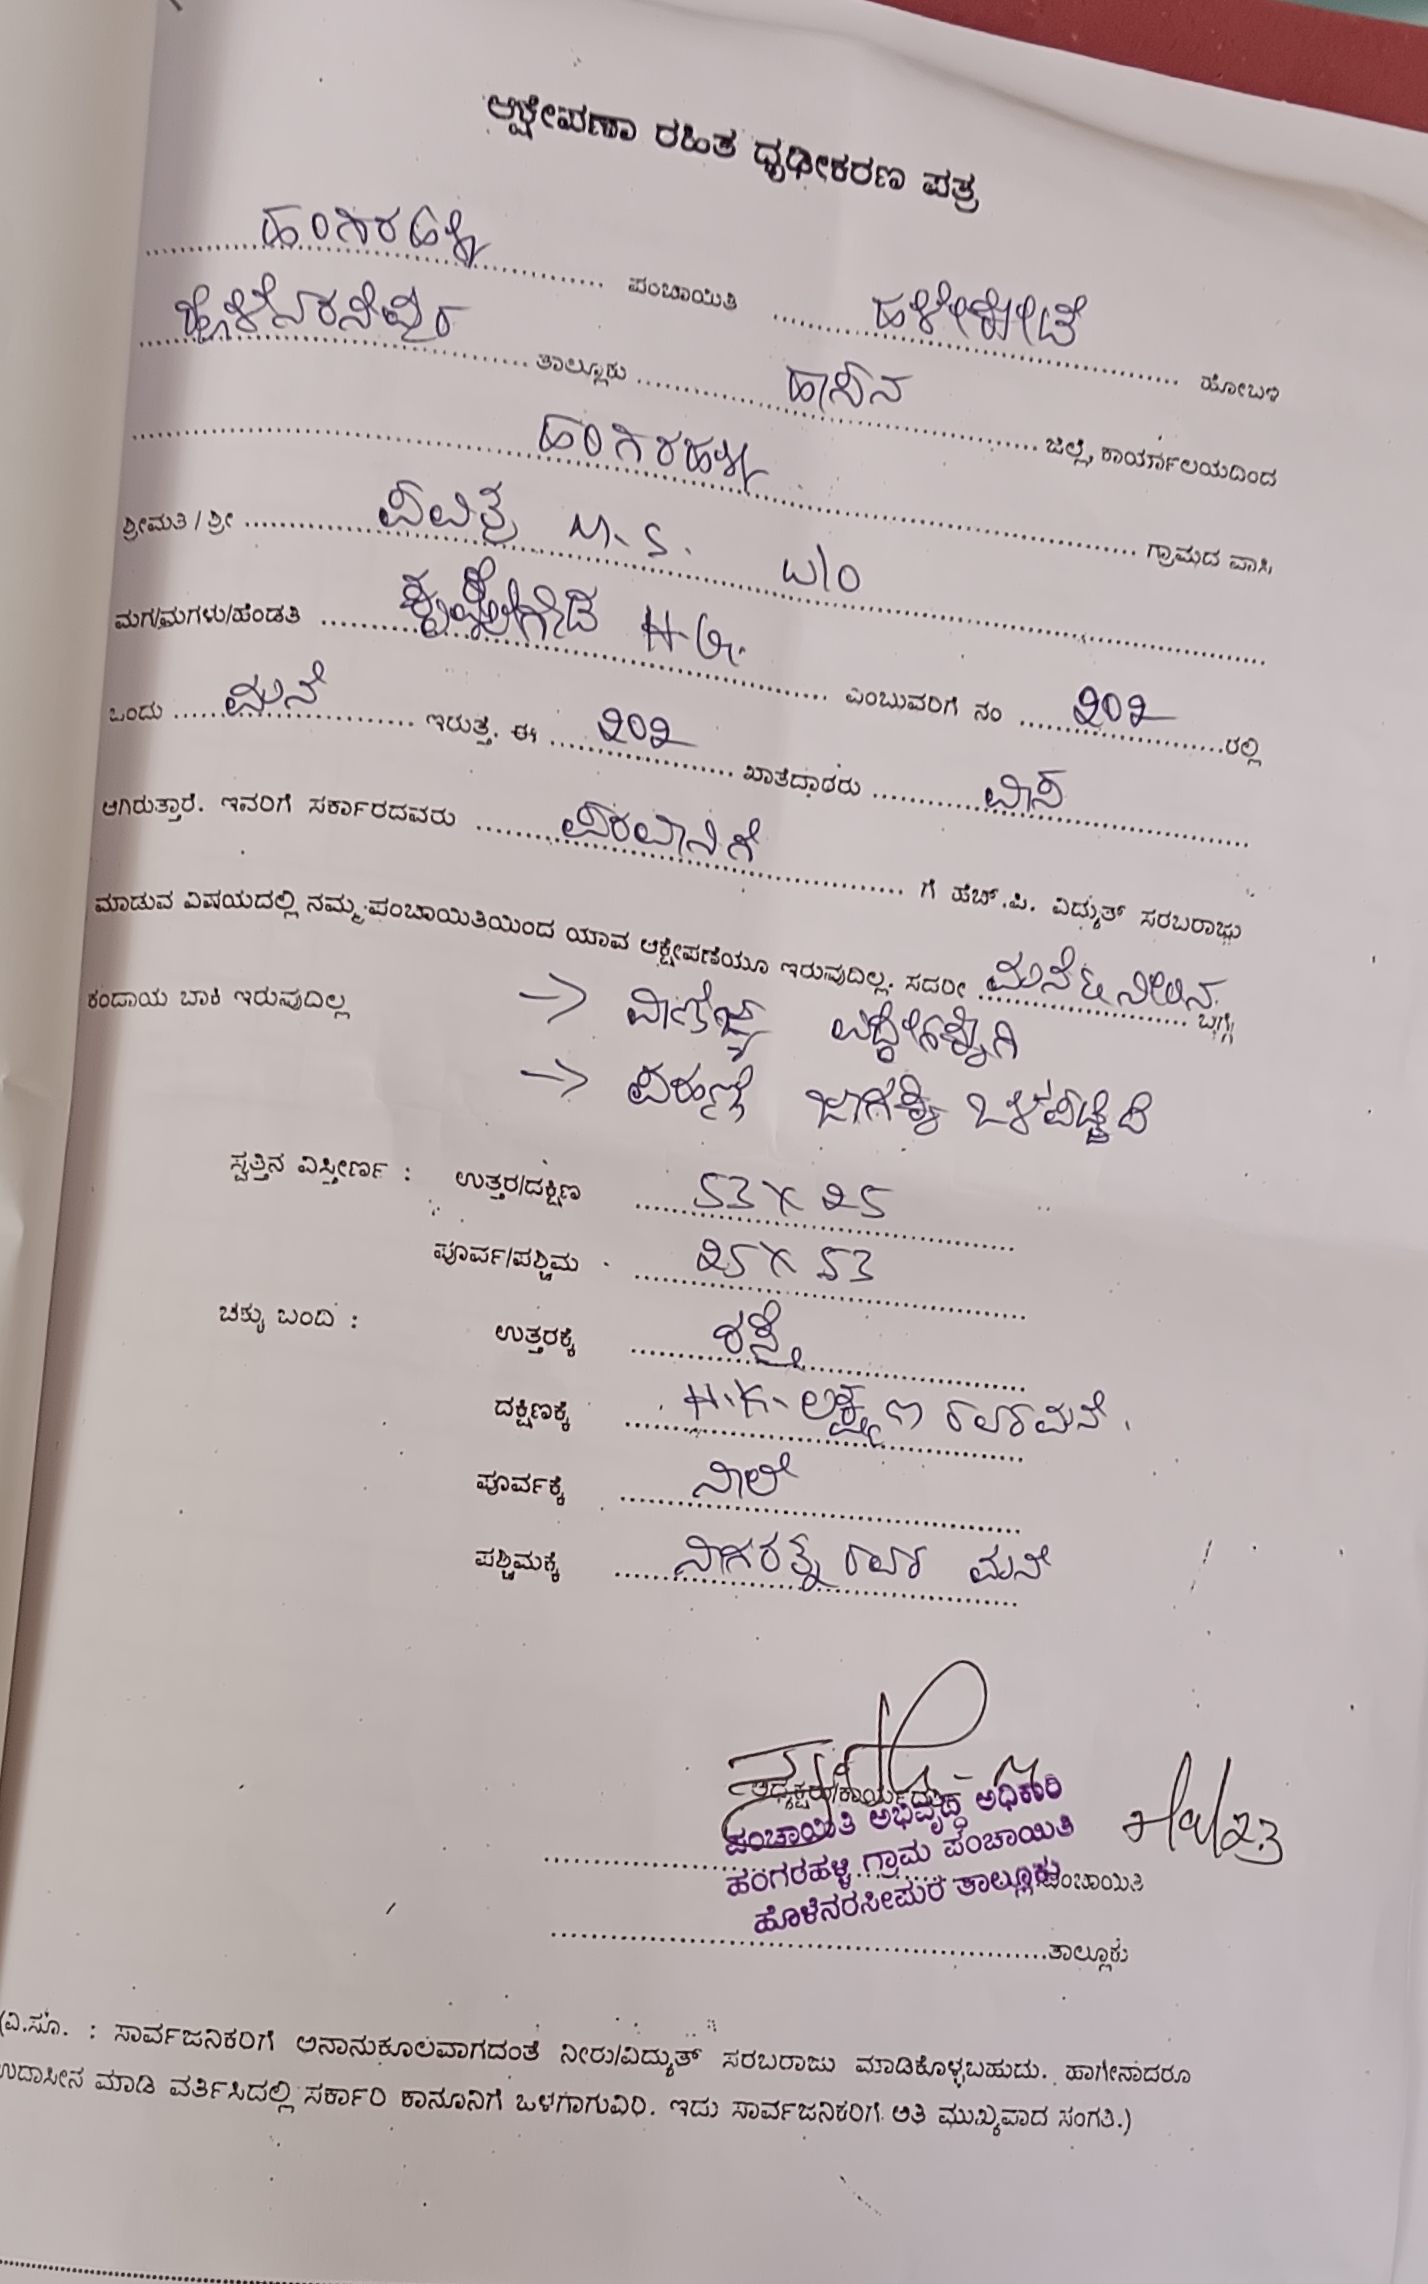 ಆಕ್ಷೇಪಣಾ ರಹಿತ ಧೃಢೀಕರಣ ಪತ್ರ
ಹಂಗರಹಳ್ಳಿ ಪಂಚಾಯಿತಿ ಹಳೇಕೋಟೆ ಹೋಬಳಿ
ಹೊಳೆನರಸೀಪುರ ತಾಲ್ಲೂಕು ಹಾಸನ ಜಿಲ್ಲೆ, ಕಾರ್ಯಾಲಯದಿಂದ
ಹಂಗರಹಳ್ಳಿ ಗ್ರಾಮದ ವಾಸಿ
ಶ್ರೀಮತಿ / ಶ್ರೀ ಪವಿತ್ರ M.S. W/O
ಮಗ/ಮಗಳು/ಹೆಂಡತಿ H.G. ಎಂಬುವರಿಗೆ ನಂ 202 ರಲ್ಲಿ
ಒಂದು ಮನೆ ಇರುತ್ತೆ. ಈ 202 ಖಾತೆದಾರರು ವಾಸ
ಆಗಿರುತ್ತಾರೆ. ಇವರಿಗೆ ಸರ್ಕಾರದವರು ಪರವಾನಿಗೆ ಗೆ ಹೆಚ್.ಪಿ. ವಿದ್ಯುತ್ ಸರಬರಾಜು
ಮಾಡುವ ವಿಷಯದಲ್ಲಿ ನಮ್ಮ ಪಂಚಾಯಿತಿಯಿಂದ ಯಾವ ಆಕ್ಷೇಪಣೆಯೂ ಇರುವುದಿಲ್ಲ. ಸದರೀ ಮನೆ & ನೀರಿನ ಬಗ್ಗೆ
ಕಂದಾಯ ಬಾಕಿ ಇರುವುದಿಲ್ಲ → ವಾಣಿಜ್ಯ ಉದ್ದೇಶಕ್ಕಾಗಿ
→ ಜಾಗಕ್ಕೆ ಒಳಪಟ್ಟಿದೆ
ಸ್ವತ್ತಿನ ವಿಸ್ತೀರ್ಣ : ಉತ್ತರ/ದಕ್ಷಿಣ 53 X 25
ಪೂರ್ವ/ಪಶ್ಚಿಮ 25 X 53
ಚಕ್ಕು ಬಂದಿ : ಉತ್ತರಕ್ಕೆ ರಸ್ತೆ
ದಕ್ಷಿಣಕ್ಕೆ H.K. ಲಕ್ಷ್ಮಣ ರವರ ಮನೆ.
ಪೂರ್ವಕ್ಕೆ ನಾಲೆ
ಪಶ್ಚಿಮಕ್ಕೆ ನಾಗರತ್ನ ರವರ ಮನೆ
ಅಧ್ಯಕ್ಷರು/ಕಾರ್ಯದರ್ಶಿ
ಪಂಚಾಯಿತಿ ಅಭಿವೃದ್ಧಿ ಅಧಿಕಾರಿ
ಹಂಗರಹಳ್ಳಿ ಗ್ರಾಮ ಪಂಚಾಯಿತಿ
ಪಂಚಾಯಿತಿ
ಹೊಳೆನರಸೀಪುರ ತಾಲ್ಲೂಕು
ತಾಲ್ಲೂಕು
(ವಿ.ಸೂ. : ಸಾರ್ವಜನಿಕರಿಗೆ ಅನಾನುಕೂಲವಾಗದಂತೆ ನೀರು/ವಿದ್ಯುತ್ ಸರಬರಾಜು ಮಾಡಿಕೊಳ್ಳಬಹುದು. ಹಾಗೇನಾದರೂ
ಉದಾಸೀನ ಮಾಡಿ ವರ್ತಿಸಿದಲ್ಲಿ ಸರ್ಕಾರಿ ಕಾನೂನಿಗೆ ಒಳಗಾಗುವಿರಿ. ಇದು ಸಾರ್ವಜನಿಕರಿಗೆ ಅತಿ ಮುಖ್ಯವಾದ ಸಂಗತಿ.)